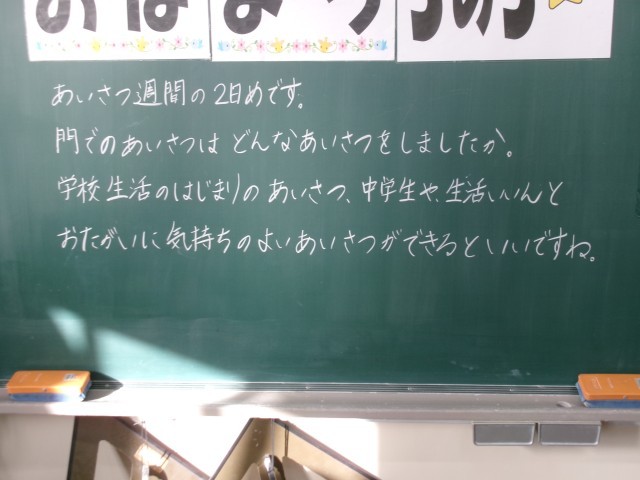 あいさつ週間の2日めです。
門でのあいさつは どんなあいさつをしましたか。
学校生活のはじまりの あいさつ、中学生や、生活いいんと
おたがいに 気持ちのよいあいさつができるといいですね。